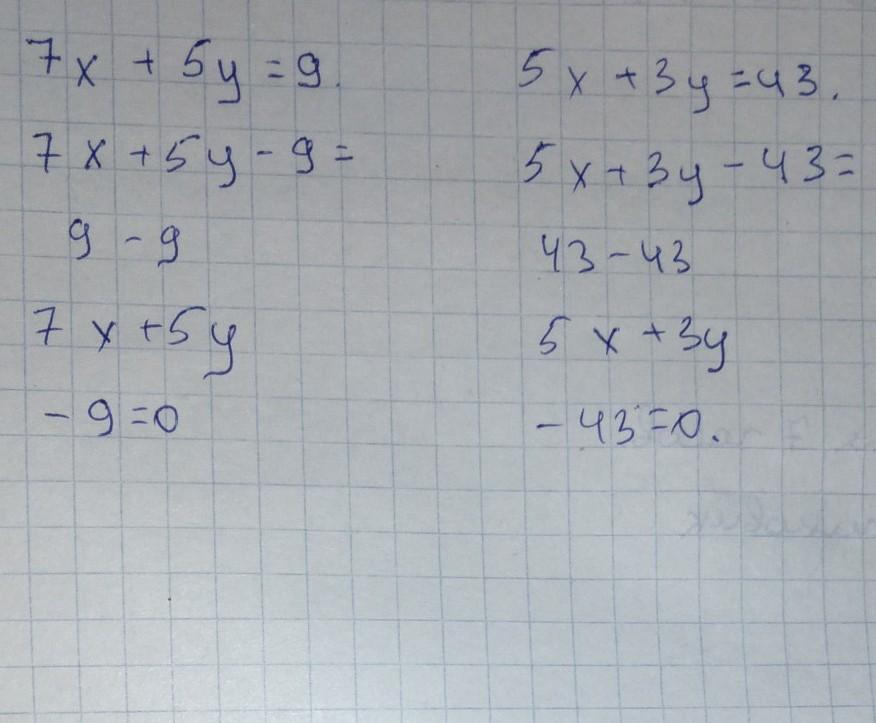 7x + 5y = 9.
7x + 5y - 9 =
9 - 9
7x + 5y
- 9 = 0
5x + 3y = 43.
5x + 3y - 43 =
43 - 43
5x + 3y
- 43 = 0.